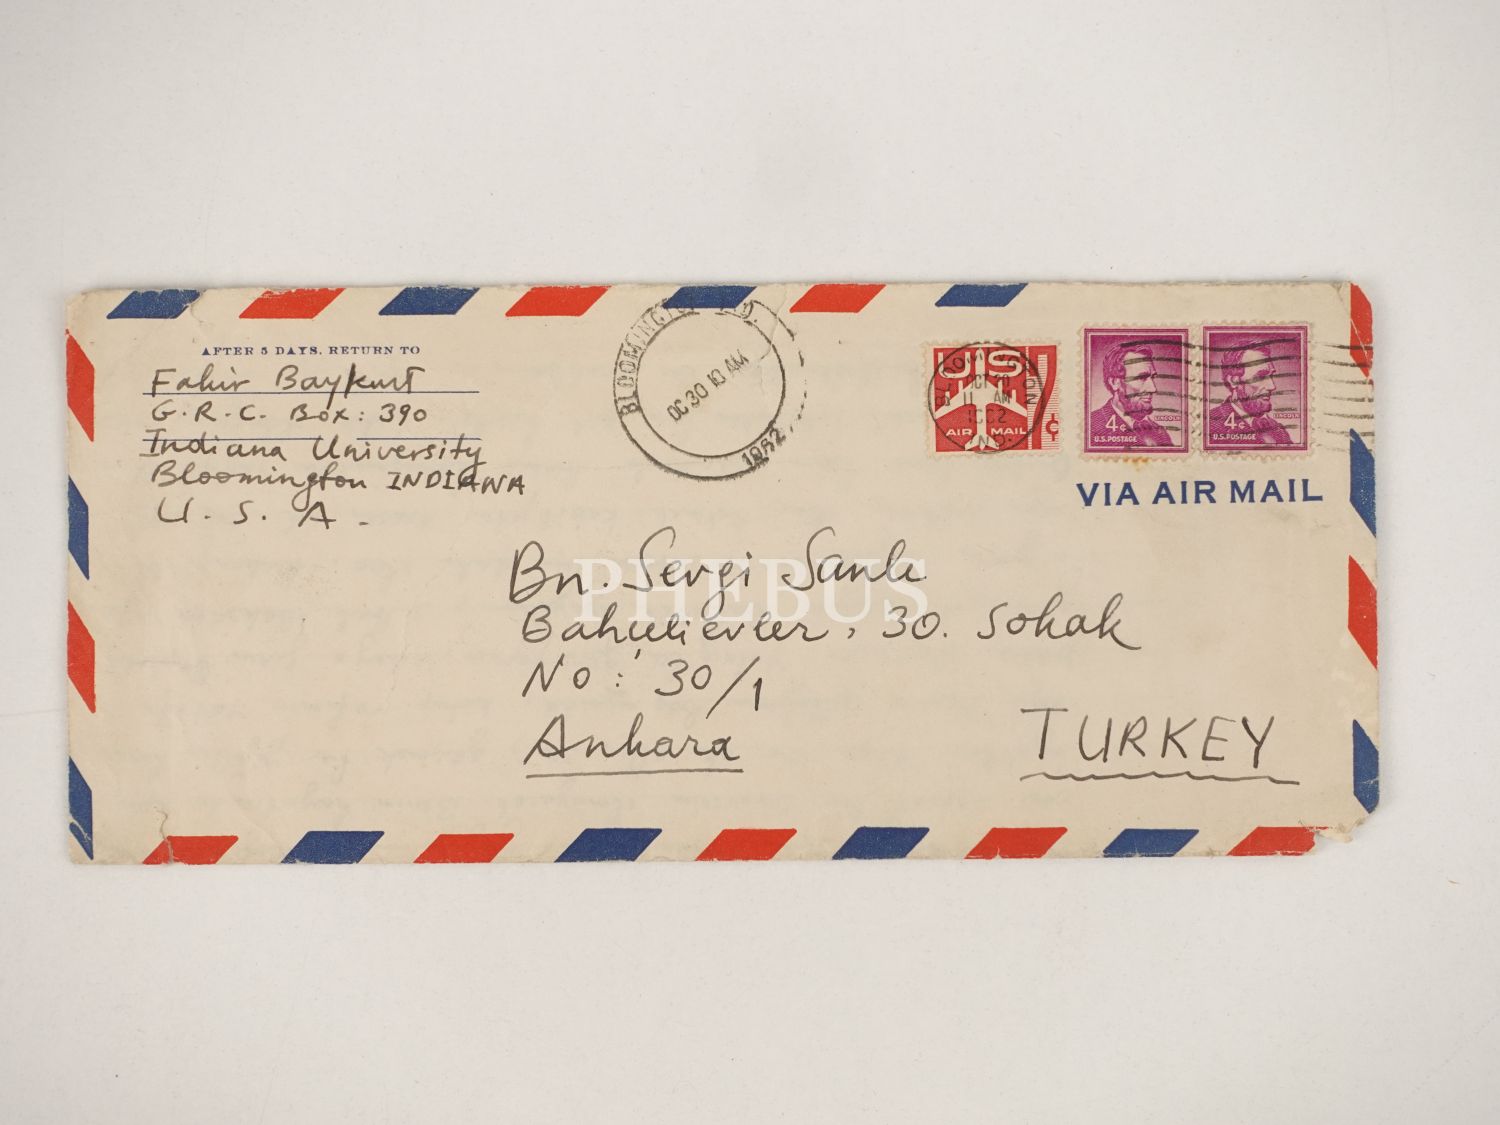 AFTER 5 DAYS, RETURN TO
Fakir Baykurt
G.R.C. Box: 390
Indiana University
Bloomington INDIANA
U. S. A.
BLOOMINGTON IND.
OC 30 10 AM
1962
US
AIR MAIL
7¢
BLOOMINGTON
OCT 30
11 AM
1962
IND.
4¢
LINCOLN
U.S. POSTAGE
4¢
LINCOLN
U.S. POSTAGE
VIA AIR MAIL
Bn. Sevgi Sanlı
Bahçelievler, 30. Sokak
No: 30/1
Ankara
TURKEY
PHEBUS